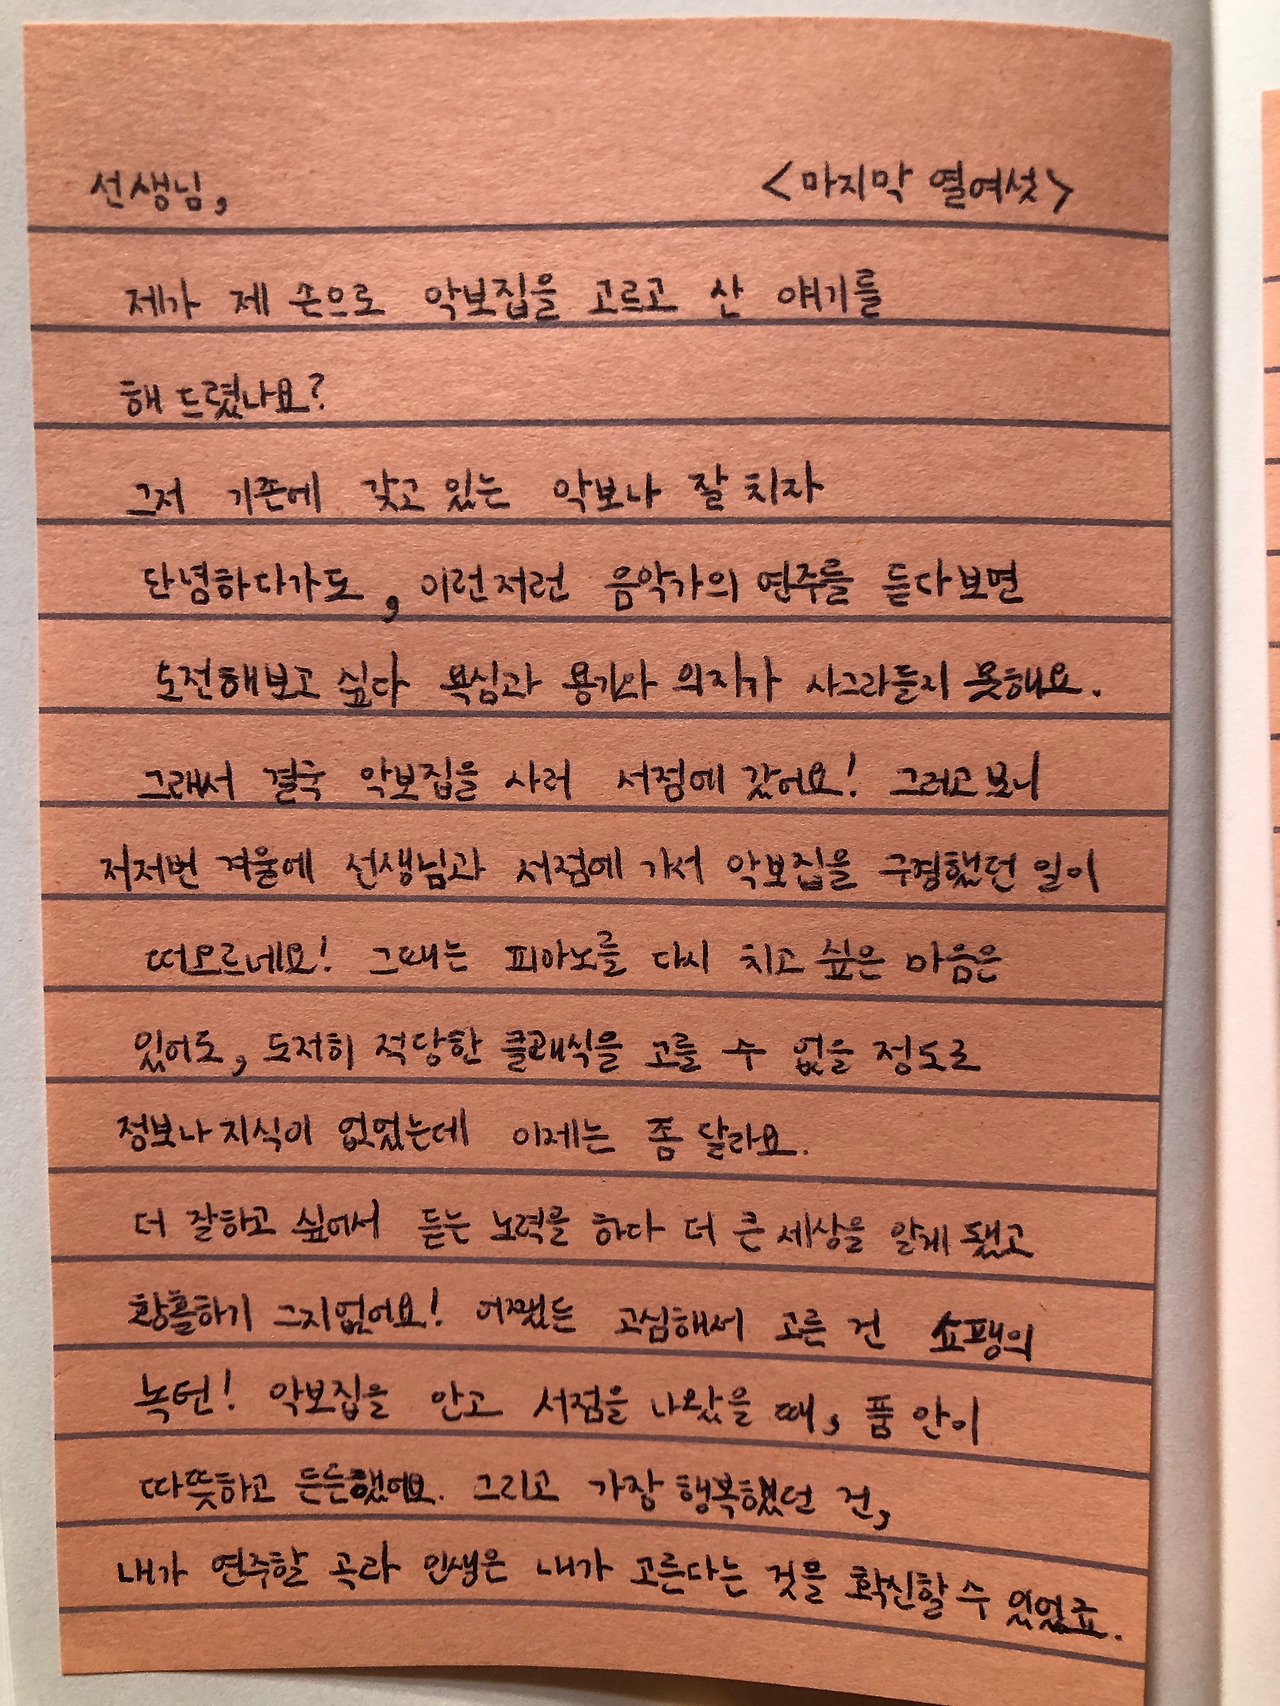 선생님, <마지막 열여섯>
제가 제 손으로 악보집을 고르고 산 얘기를
해 드렸나요?
그저 기존에 갖고 있는 악보나 잘 치자
단념하다가도, 이런저런 음악가의 연주를 듣다보면
도전해보고 싶다 욕심과 용기와 의지가 사그라들지 못해요.
그래서 결국 악보집을 사러 서점에 갔어요! 그러고보니
저저번 겨울에 선생님과 서점에 가서 악보집을 구경했던 일이
떠오르네요! 그때는 피아노를 다시 치고 싶은 마음은
있어도, 도저히 적당한 클래식을 고를 수 없을 정도로
정보나 지식이 없었는데 이제는 좀 달라요.
더 잘하고 싶어서 듣는 노력을 하다 더 큰 세상을 알게 됐고
황홀하기 그지없어요! 어쨌든 고심해서 고른 건 쇼팽의
녹턴! 악보집을 안고 서점을 나왔을 때, 품 안이
따뜻하고 든든했어요. 그리고 가장 행복했던 건,
내가 연주할 곡과 인생은 내가 고른다는 것을 확신할 수 있었죠.